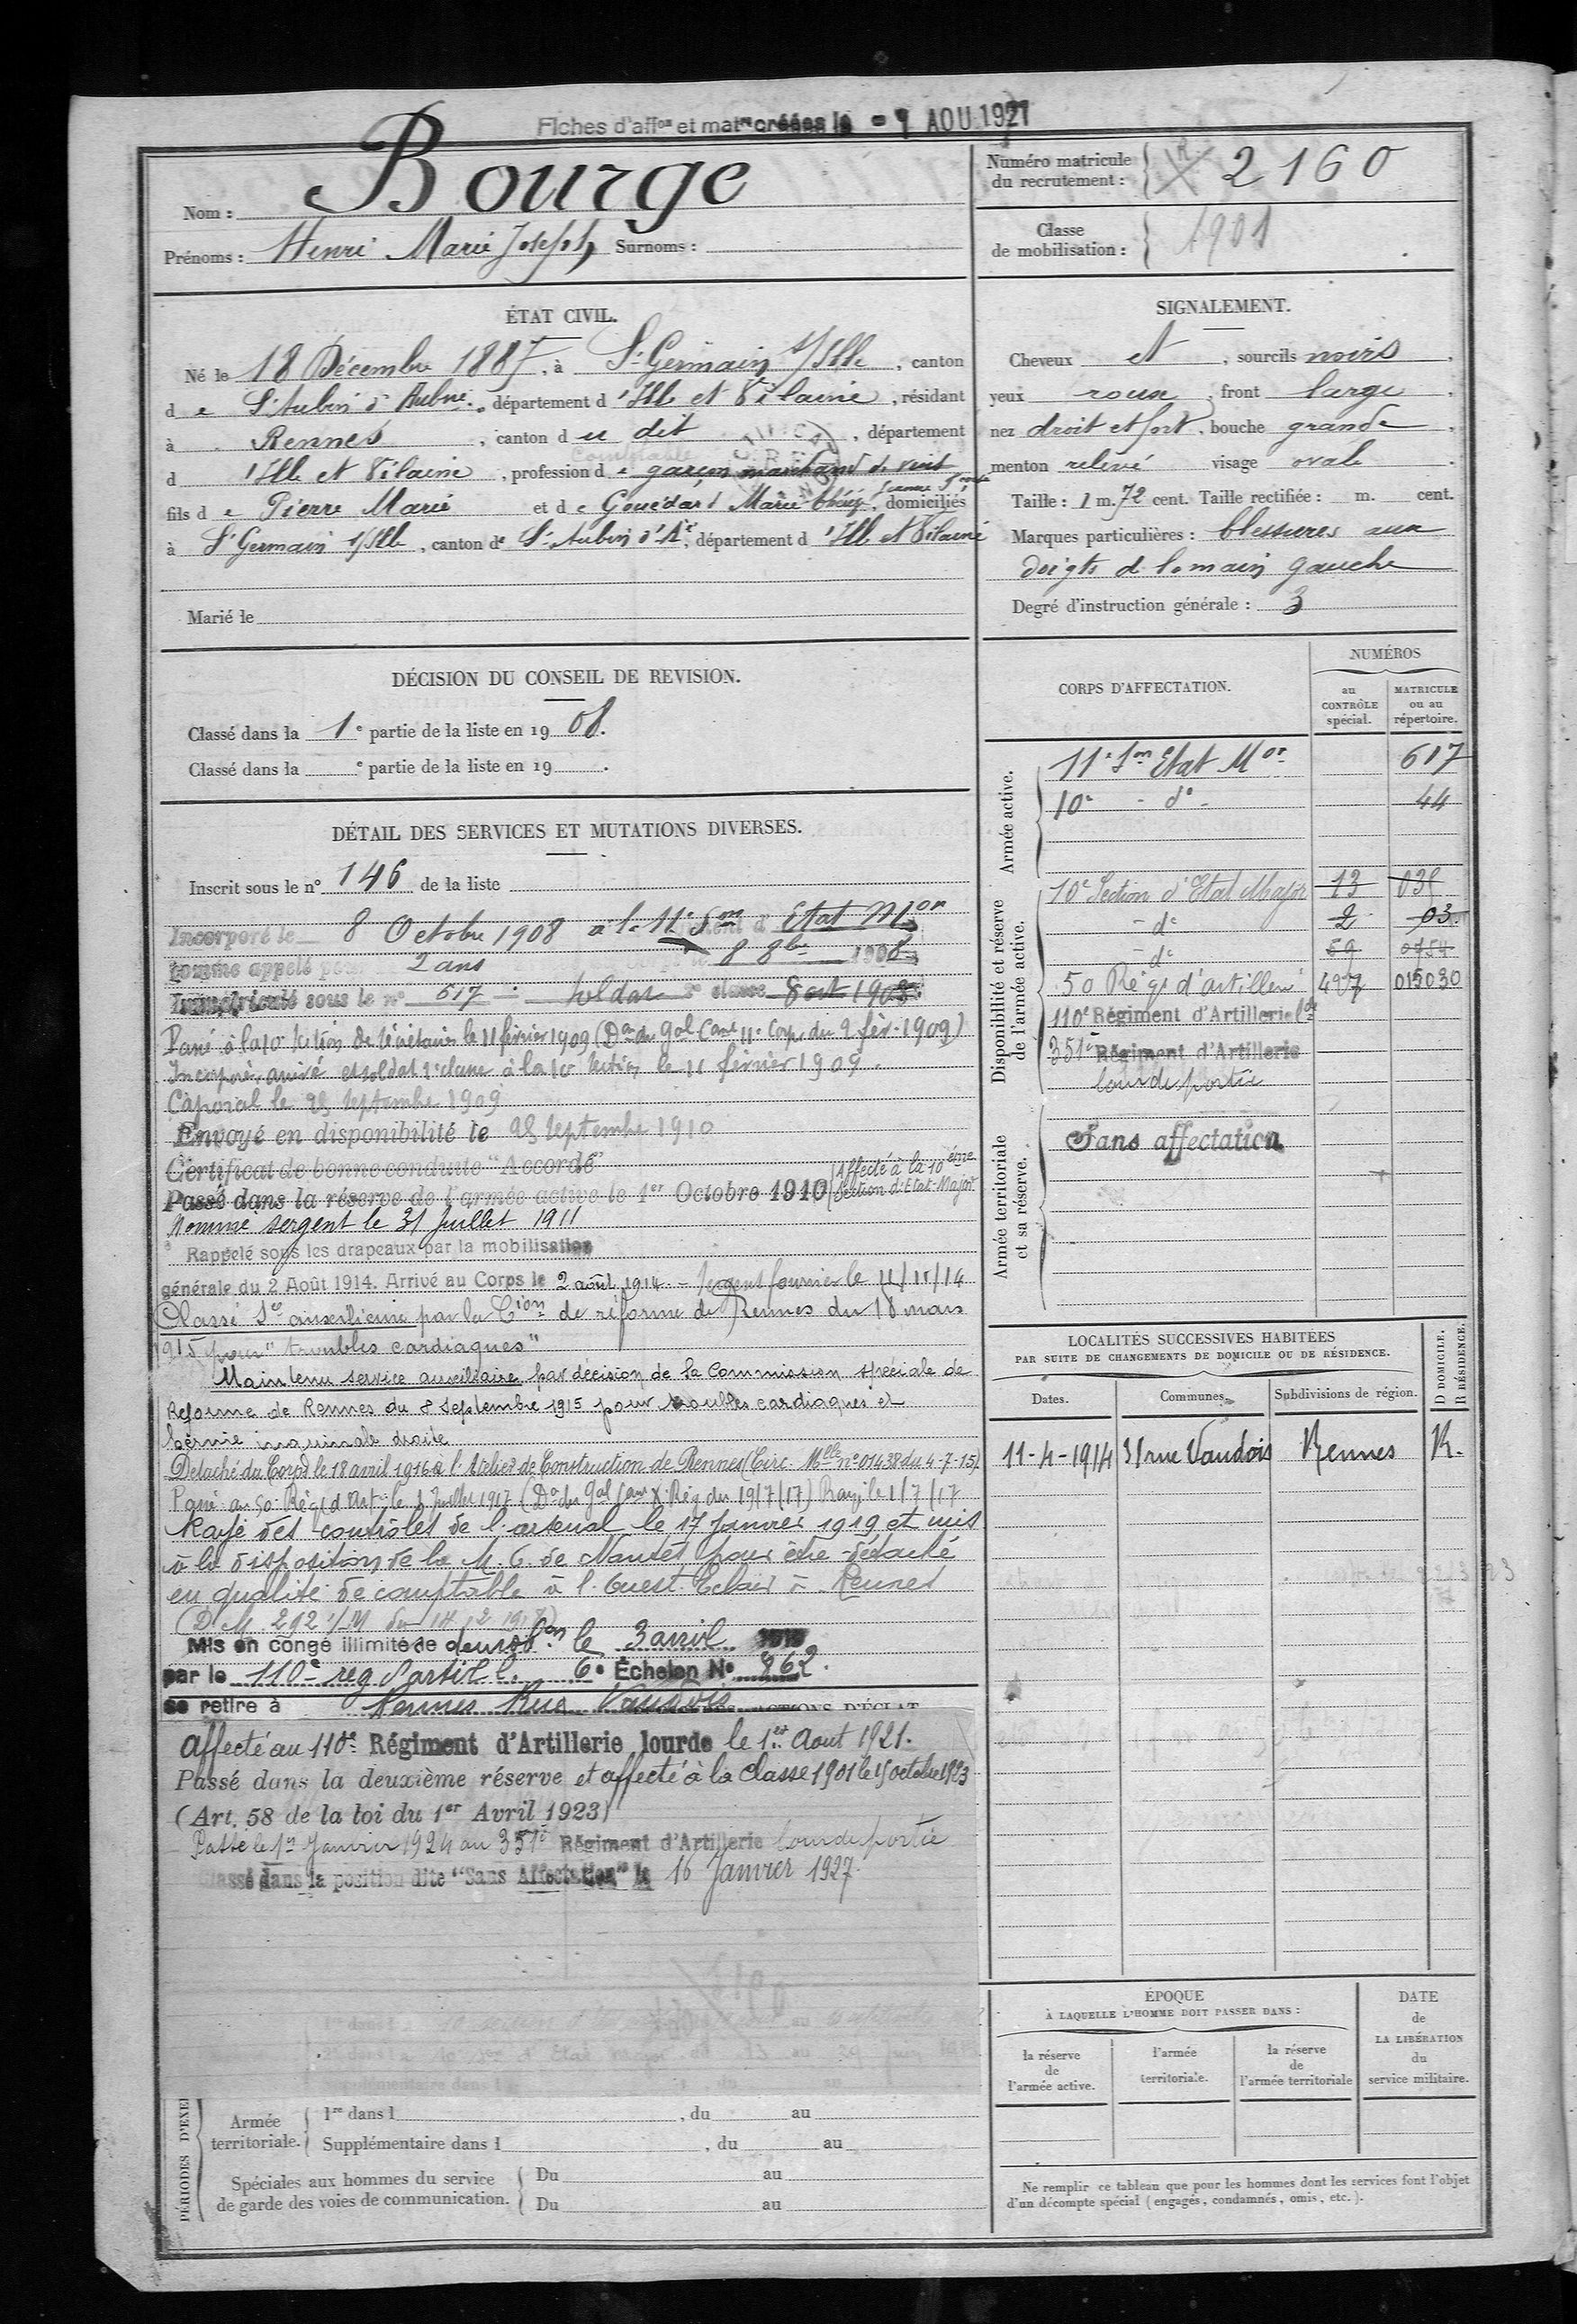 Fiches d'aff^on et mat^le créées le - 9 AOU 1927
Nom : Bourge
Prénoms : Henri Marie Joseph Surnoms :
Numéro matricule du recrutement : R 2160
Classe de mobilisation : 1901
ÉTAT CIVIL.
Né le 18 Décembre 1887, à St Germain s/Ille, canton
de St Aubin d'Aubné, département d'Ille et Vilaine, résidant
à Rennes, canton du dit, département
d'Ille et Vilaine, profession de garçon marchand de vins
Comptable
fils de Pierre Marie et de Gouédard Marie, domiciliés
à St Germain s/Ille, canton de St Aubin d'A^é, département d'Ille et Vilaine
Marié le
SIGNALEMENT.
Cheveux et, sourcils noirs,
yeux roux, front large,
nez droit et fort, bouche grande,
menton relevé visage ovale.
Taille : 1 m. 72 cent. Taille rectifiée : m. cent.
Marques particulières : blessures aux
doigts d la main gauche
Degré d'instruction générale : 3
DÉCISION DU CONSEIL DE REVISION.
Classé dans la 1e partie de la liste en 1908.
Classé dans la e partie de la liste en 19 .
DÉTAIL DES SERVICES ET MUTATIONS DIVERSES.
Inscrit sous le n° 146 de la liste
Incorporé le 8 Octobre 1908 à la 11e S^on d'Etat M^or
comme appelé pour 2 ans 8 8bre 1908
Immatriculé sous le n° 617 soldat 2e classe 8 oct 1908
Passé à la 10e Section de Secrétaires le 11 février 1909 (D^on du Gal C^ant 11e Corps du 2 fév. 1909)
Incorporé, arrivé et soldat 2e classe à la 10e Section le 11 février 1909.
Caporal le 25 Septembre 1909
Envoyé en disponibilité le 25 Septembre 1910
Certificat de bonne conduite "Accordé"
Passé dans la réserve de l'armée active le 1er Octobre 1910 (Affecté à la 10ème Section d'Etat-Major
Nommé sergent le 31 Juillet 1911
Rappelé sous les drapeaux par la mobilisation
générale du 2 Août 1914. Arrivé au Corps le 2 août 1914. - Sergent fourrier le 11/11/14
Classé S^ce auxiliaire par la C^ion de réforme de Rennes du 18 mars
1915 pour "troubles cardiaques"
Maintenu service auxiliaire par décision de la Commission spéciale de
Réforme de Rennes du 8 Septembre 1915 pour troubles cardiaques et
hernie inguinale droite
Détaché du Corps le 18 avril 1916 à l'Atelier de Construction de Rennes (Circ. M^lle n° 01438 du 4-7-15)
Passé au 50e Régt d'Art^ie le 1 Juillet 1917 (D^on du Gal C^ant X Rég du 19/7/17) Rayé le 1/7/17
Rayé des contrôles de l'arsenal le 17 Janvier 1919 et mis
à la disposition de la M. G. de Nantes pour être détaché
en qualité de comptable à l'Ouest Eclair à Rennes
(D M 292 1/M du 14 2 1917)
Mis en congé illimité de démob^on le 3 avril 1919
par le 110e reg d'artill. 6e Échelon N° 862.
se retire à Rennes Rue Vaudois
ACTIONS D'ÉCLAT
affecté au 110e Régiment d'Artillerie lourde le 1er Aout 1921.
Passé dans la deuxième réserve et affecté à la Classe 1901 le 15 octobre 1923
(Art. 58 de la loi du 1er Avril 1923)
Passé le 1er Janvier 1924 au 351e Régiment d'Artillerie lourde portée
Classé dans la position dite "Sans Affectation" le 16 Janvier 1927.
CORPS D'AFFECTATION.
NUMÉROS
au CONTRÔLE spécial.
MATRICULE ou au répertoire.
Armée active.
11e S^on Etat M^or 617
10e - d° - 44
Disponibilité et réserve de l'armée active.
10e Section d'Etat Major 13 035
- d° 2 03
- d° 59 0754
50 Régt d'artillerie 4977 015030
110e Régiment d'Artillerie l^de
351e Régiment d'Artillerie
lourde portée
Armée territoriale et sa réserve.
Sans affectation
LOCALITÉS SUCCESSIVES HABITÉES
PAR SUITE DE CHANGEMENTS DE DOMICILE OU DE RÉSIDENCE.
Dates. Communes. Subdivisions de région. D DOMICILE. R RÉSIDENCE.
11-4-1914 31 rue Vaudois Rennes R.
ÉPOQUE
À LAQUELLE L'HOMME DOIT PASSER DANS :
la réserve de l'armée active.
l'armée territoriale.
la réserve de l'armée territoriale
DATE de LA LIBÉRATION du service militaire.
Ne remplir ce tableau que pour les hommes dont les services font l'objet
d'un décompte spécial (engagés, condamnés, omis, etc.).
PÉRIODES D'EXE
Armée territoriale.
1re dans l , du au
Supplémentaire dans l , du au
Spéciales aux hommes du service
de garde des voies de communication.
Du au
Du au